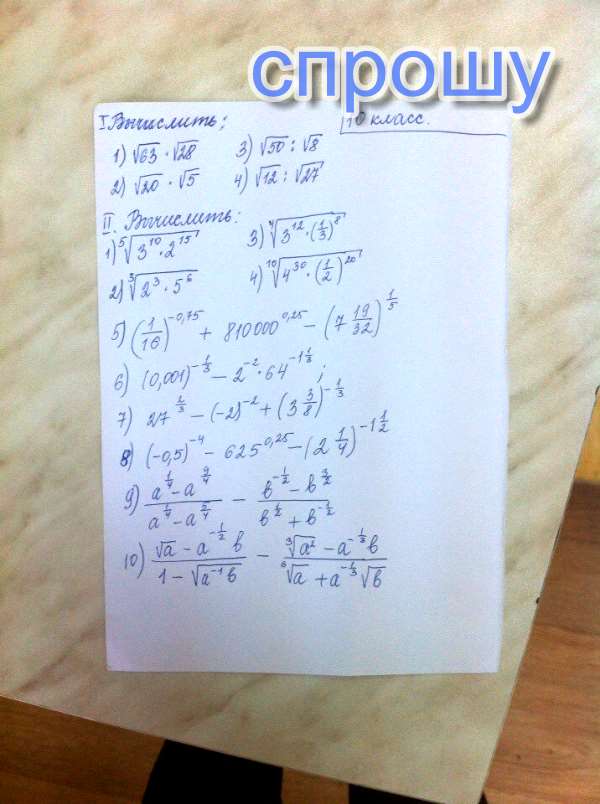 спрошу
I Вычислить; 10 класс.
1) √63 · √28 3) √50 : √8
2) √20 · √5 4) √12 : √27
II. Вычислить:
1) ⁵√(3¹⁰ · 2¹⁵) 3) ⁴√(3¹² · (1/3)⁸)
2) ³√(2³ · 5⁶) 4) ¹⁰√(4³⁰ · (1/2)²⁰)
5) (1/16)^(-0,75) + 810000^(0,25) − (7 19/32)^(1/5)
6) (0,001)^(-1/3) − 2^(-2) · 64^(-1 1/3) ;
7) 27^(2/3) − (−2)^(-2) + (3 3/8)^(-1/3)
8) (−0,5)^(-4) − 625^(0,25) − (2 1/4)^(-1 1/2)
9) (a^(1/4) − a^(9/4))/(a^(1/4) − a^(5/4)) − (b^(-1/2) − b^(3/2))/(b^(1/2) + b^(-1/2))
10) (√a − a^(-1/2) b)/(1 − √(a^(-1) b)) − (³√(a²) − a^(-1/3) b)/(⁶√a + a^(-1/3) √b)